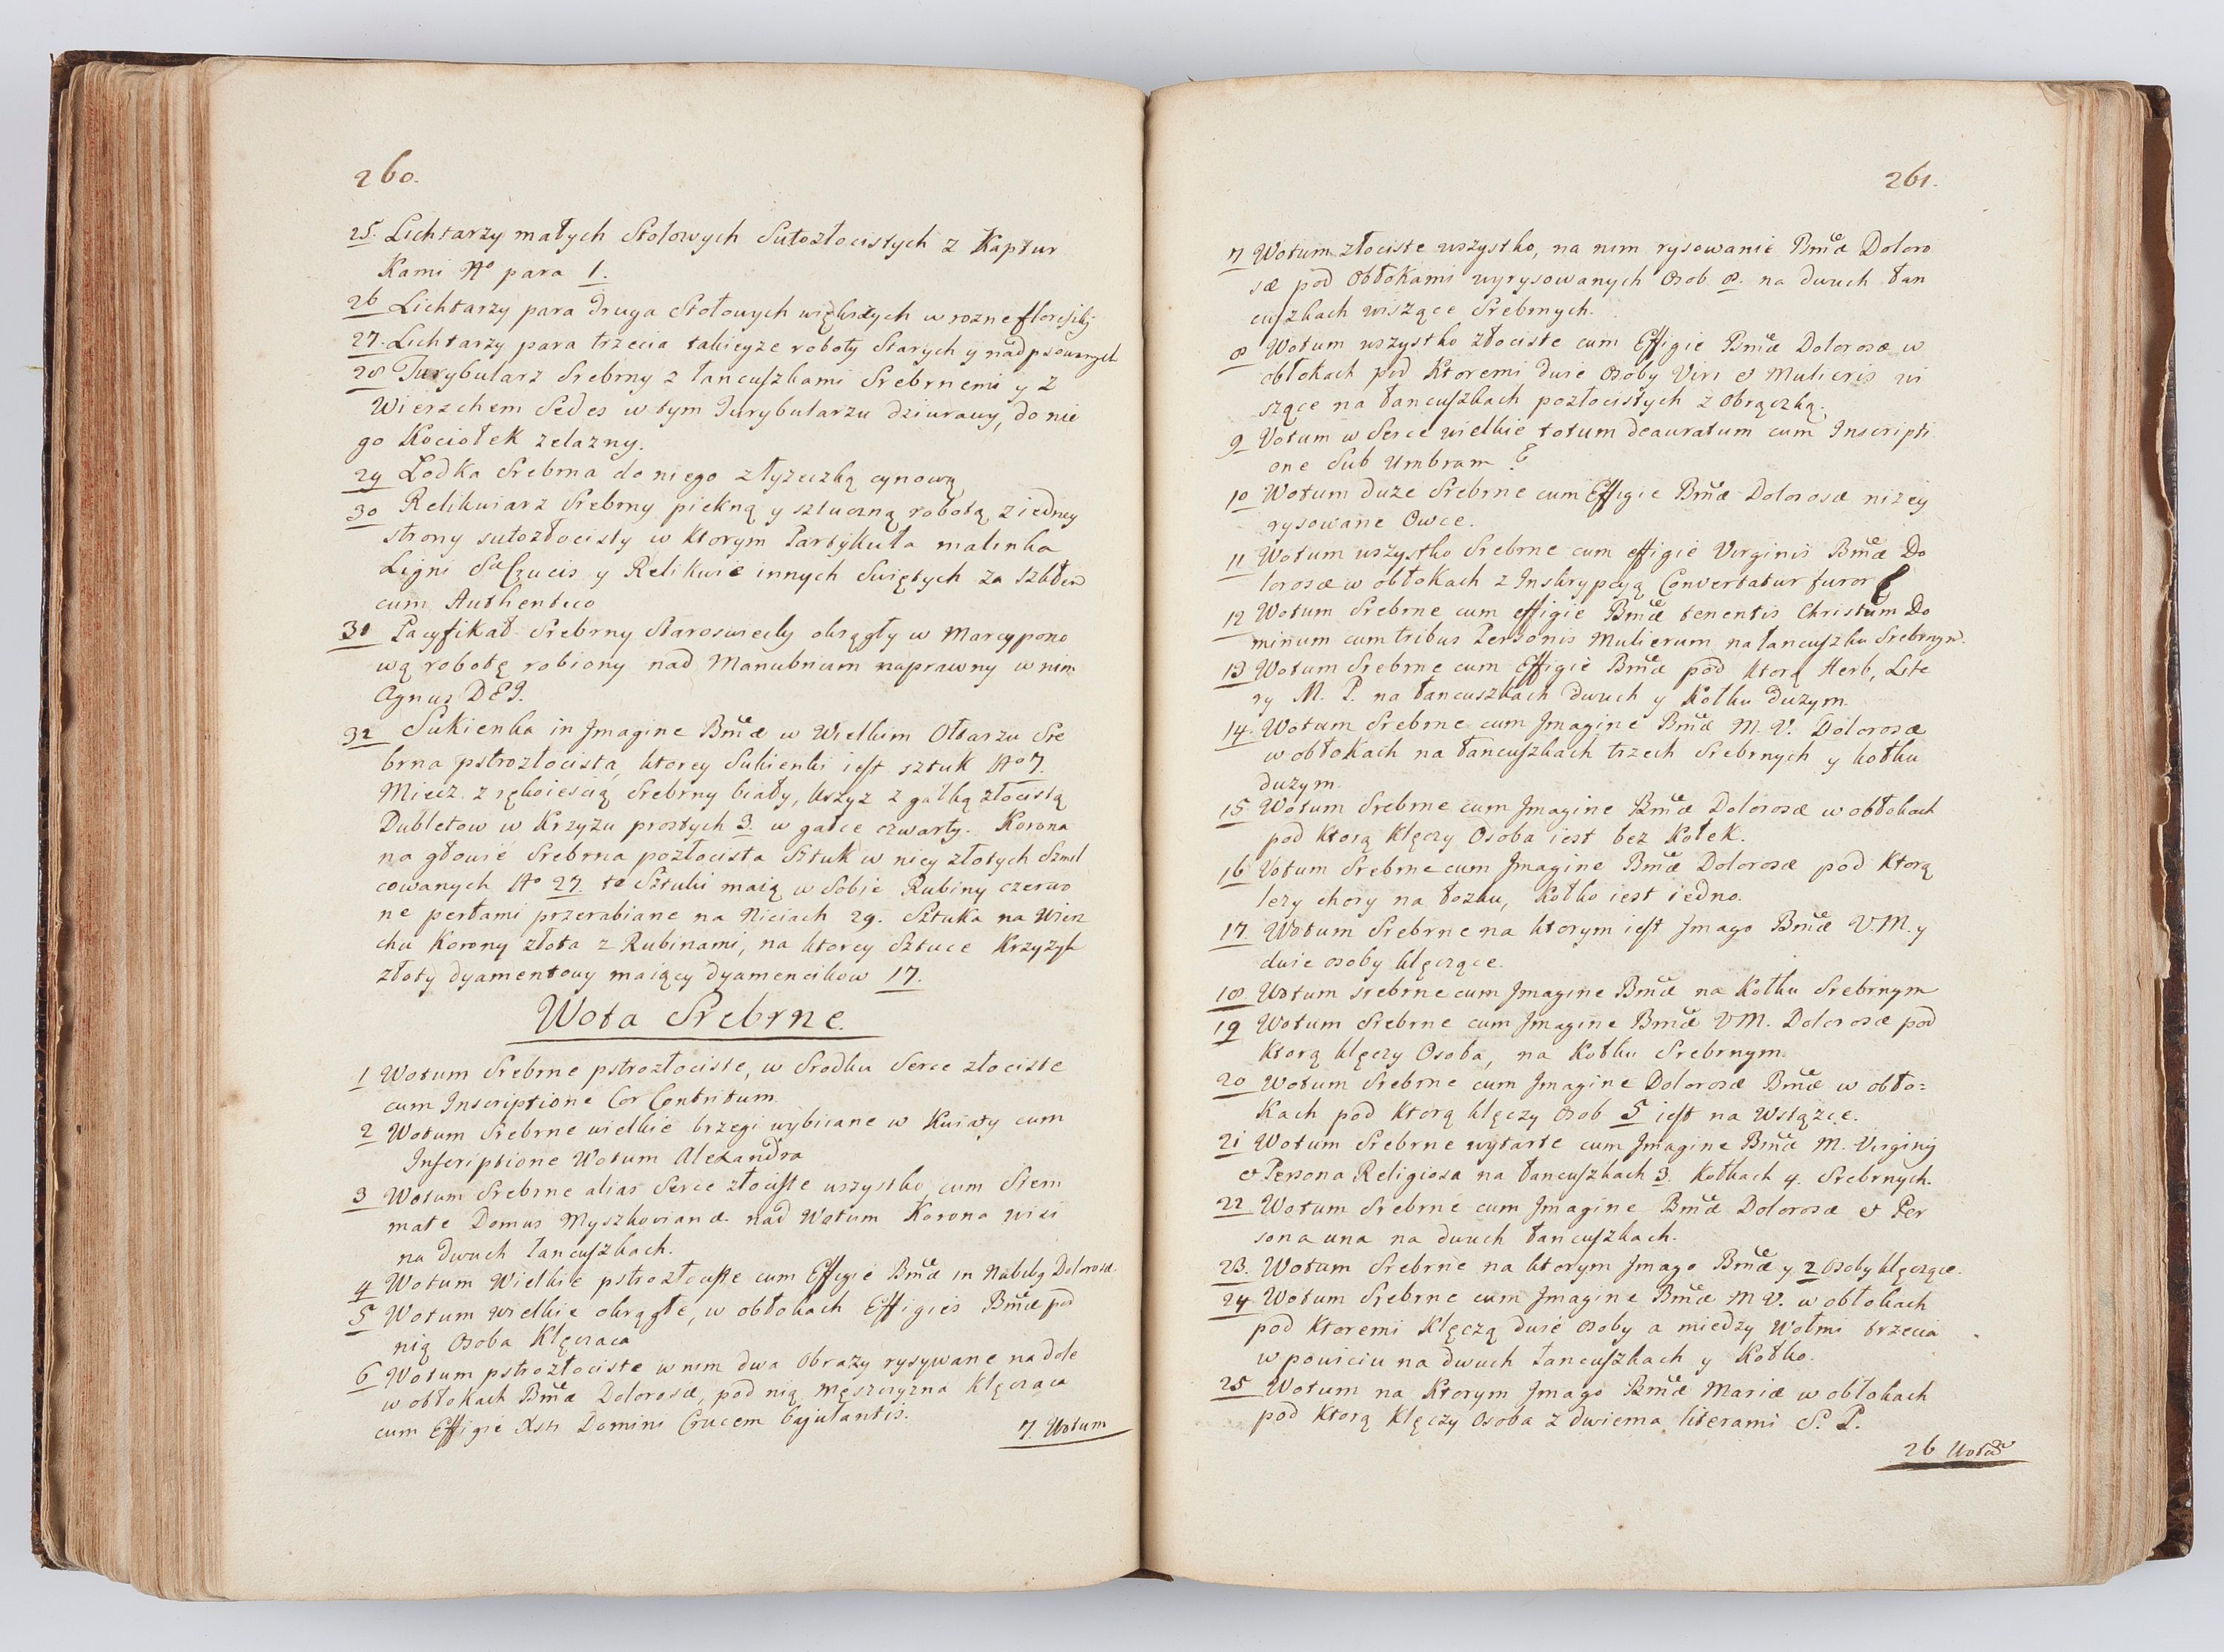 260.
25. Lichtarzy małych Stolowych Sutozłocistych z Kaptur
Kami No para 1.
26 Lichtarzy para druga Stołowych większych w rozne
27. Lichtarzy para trzecia takieyze roboty Starych y nadpsowanych
28 Turybularz Srebrny z łancuszkami Srebrnemi y z
Wierzchem Sedes w tym Turybularzu dziurawy, do nie
go Kociołek zelazny.
29 Lodka Srebrna do niego z łyzeczką cynową
30 Relikwiarz Srebrny piekną y sztuczną robotą z iedney
strony sutozłocisty w Ktorym Partykuła malinka
Ligni Sæ Crucis y Relikwie innych Swiętych za szkłem
cum Authentico
31 Pacyfikał Srebrny Staroswiecky okrągły w Marcypono
wą robotę robiony nad Manubrium naprawny w nim
Agnus DEI.
32 Sukienka in Imagine Bmæ w Wielkim Ołtarzu Sre
brna pstrozłocista, ktorey Sukienki iest sztuk No 7.
Miecz z rękoieścią Srebrny biały, krzyz z gałką złocistą
Dubletow w Krzyzu prostych 3. w gałce czwarty. Korona
na głowie Srebrna pozłocista Sztuk w niey złotych Szmel
cowanych No 27. te Sztuki maią w Sobie Rubiny czerwo
ne perłami przerabiane na Niciach 29. Sztuka na Wierz
chu Korony złota z Rubinami, na ktorey Sztuce Krzyzyk
złoty dyamentowy maiący dyamencikow 17.
Wota Srebrne.
1 Wotum Srebrne pstrozłociste, w Srodku Serce złociste
cum Inscriptione Cor Contritum
2 Wotum Srebrne wielkie brzegi wybiiane w Kwiaty cum
Inscriptione Wotum Alexandra
3 Wotum Srebrne alias Serce złociste wszystko cum Stem
mate Domus Myszkovianæ nad Wotum Korona wisi
na dwuch łancuszkach.
4 Wotum Wielkie pstrozłociste cum Effigie Bmæ in Nubibq Dolorosæ.
5 Wotum wielkie okrągłe, w obłokach Effigies Bmæ pod
nią Osoba Klęcząca
6 Wotum pstrozłociste w nim dwa Obrazy rysywane na dole
w obłokach Bmæ Dolorosæ, pod nią męszczyzna Klęcząca
cum Effigie Xsti Domini Crucem bajulantis.
7. Wotum
261.
7 Wotum złociste wszystko, na nim rysowanie Bmæ Doloro
sæ pod Obłokami wyrysowanych Osob 8. na dwuch łan
cuszkach wiszące Srebrnych.
8 Wotum wszystko złociste cum Effigie Bmæ Dolorosæ w
obłokach pod Ktoremi dwie Osoby Viri et Mulieris wi
szące na łancuszkach pozłocistych z Obrączką.
9 Votum w Serce wielkie totum deauratum cum Inscripti
one Sub Umbram
10 Wotum duze Srebrne cum Effigie Bmæ Dolorosæ nizey
rysowane Owce.
11 Wotum wszystko Srebrne cum effigie Virginis Bmæ Do
lorosæ w obłokach z Inskrypcyą Convertatur furor
12 Wotum Srebrne cum effigie Bmæ tenentis Christum Do
minum cum tribus Personis Mulierum na łancuszku Srebrnym.
13 Wotum Srebrne cum Effigie Bmæ pod ktorą Herb, Lite
ry M. P. na łancuszkach dwuch y Kołku duzym
14. Wotum Srebrne cum Imagine Bmæ M. V. Dolorosæ
w obłokach na łancuszkach trzech Srebrnych y kołku
duzym
15 Wotum Srebrne cum Imagine Bmæ Dolorosæ w obłokach
pod Ktorą Klęczy Osoba iest bez Kołek.
16 Votum Srebrne cum Imagine Bmæ Dolorosæ pod Ktorą
lezy chory na łozku, Kołko iest iedno.
17 Wotum Srebrne na ktorym iest Imago Bmæ V. M. y
dwie osoby klęczące.
18 Wotum srebrne cum Imagine Bmæ na Kołku Srebrnym
19 Wotum Srebrne cum Imagine Bmæ VM. Dolorosæ pod
Ktorą klęczy Osoba, na Kołku Srebrnym
20 Wotum Srebrne cum Imagine Dolorosæ Bmæ w obło=
Kach pod Ktorą klęczy Osob 5 iest na Wstązce.
21 Wotum Srebrne wytarte cum Imagine Bmæ M. Virginis
et Persona Religiosa na łancuszkach 3. Kołkach 4. Srebrnych.
22 Wotum Srebrne cum Imagine Bmæ Dolorosæ et Per
sona una na dwuch łancuszkach.
23. Wotum Srebrne na ktorym Imago Bmæ y 2 osoby klęczące.
24 Wotum Srebrne cum Imagine Bmæ M V. w obłokach
pod Ktoremi Klęczą dwie osoby a miedzy Wołmi trzecia
w powiciu na dwuch łancuszkach y Kołko.
25 Wotum na Ktorym Imago Bmæ Mariæ w obłokach
pod Ktorą Klęczy Osoba z dwiema literami S. P.
26 Wotum